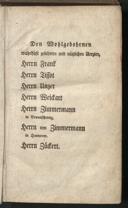 Den Wohlgebohrnen
wahrhaft gelehrten und nützlichen Aerzten,
Herrn Frank
Herrn Tissot
Herrn Unzer
Herrn Weickart
Herrn Zimmermann
in Braunschweig,
Herrn von Zimmermann
in Hannover,
Herrn Zückert.